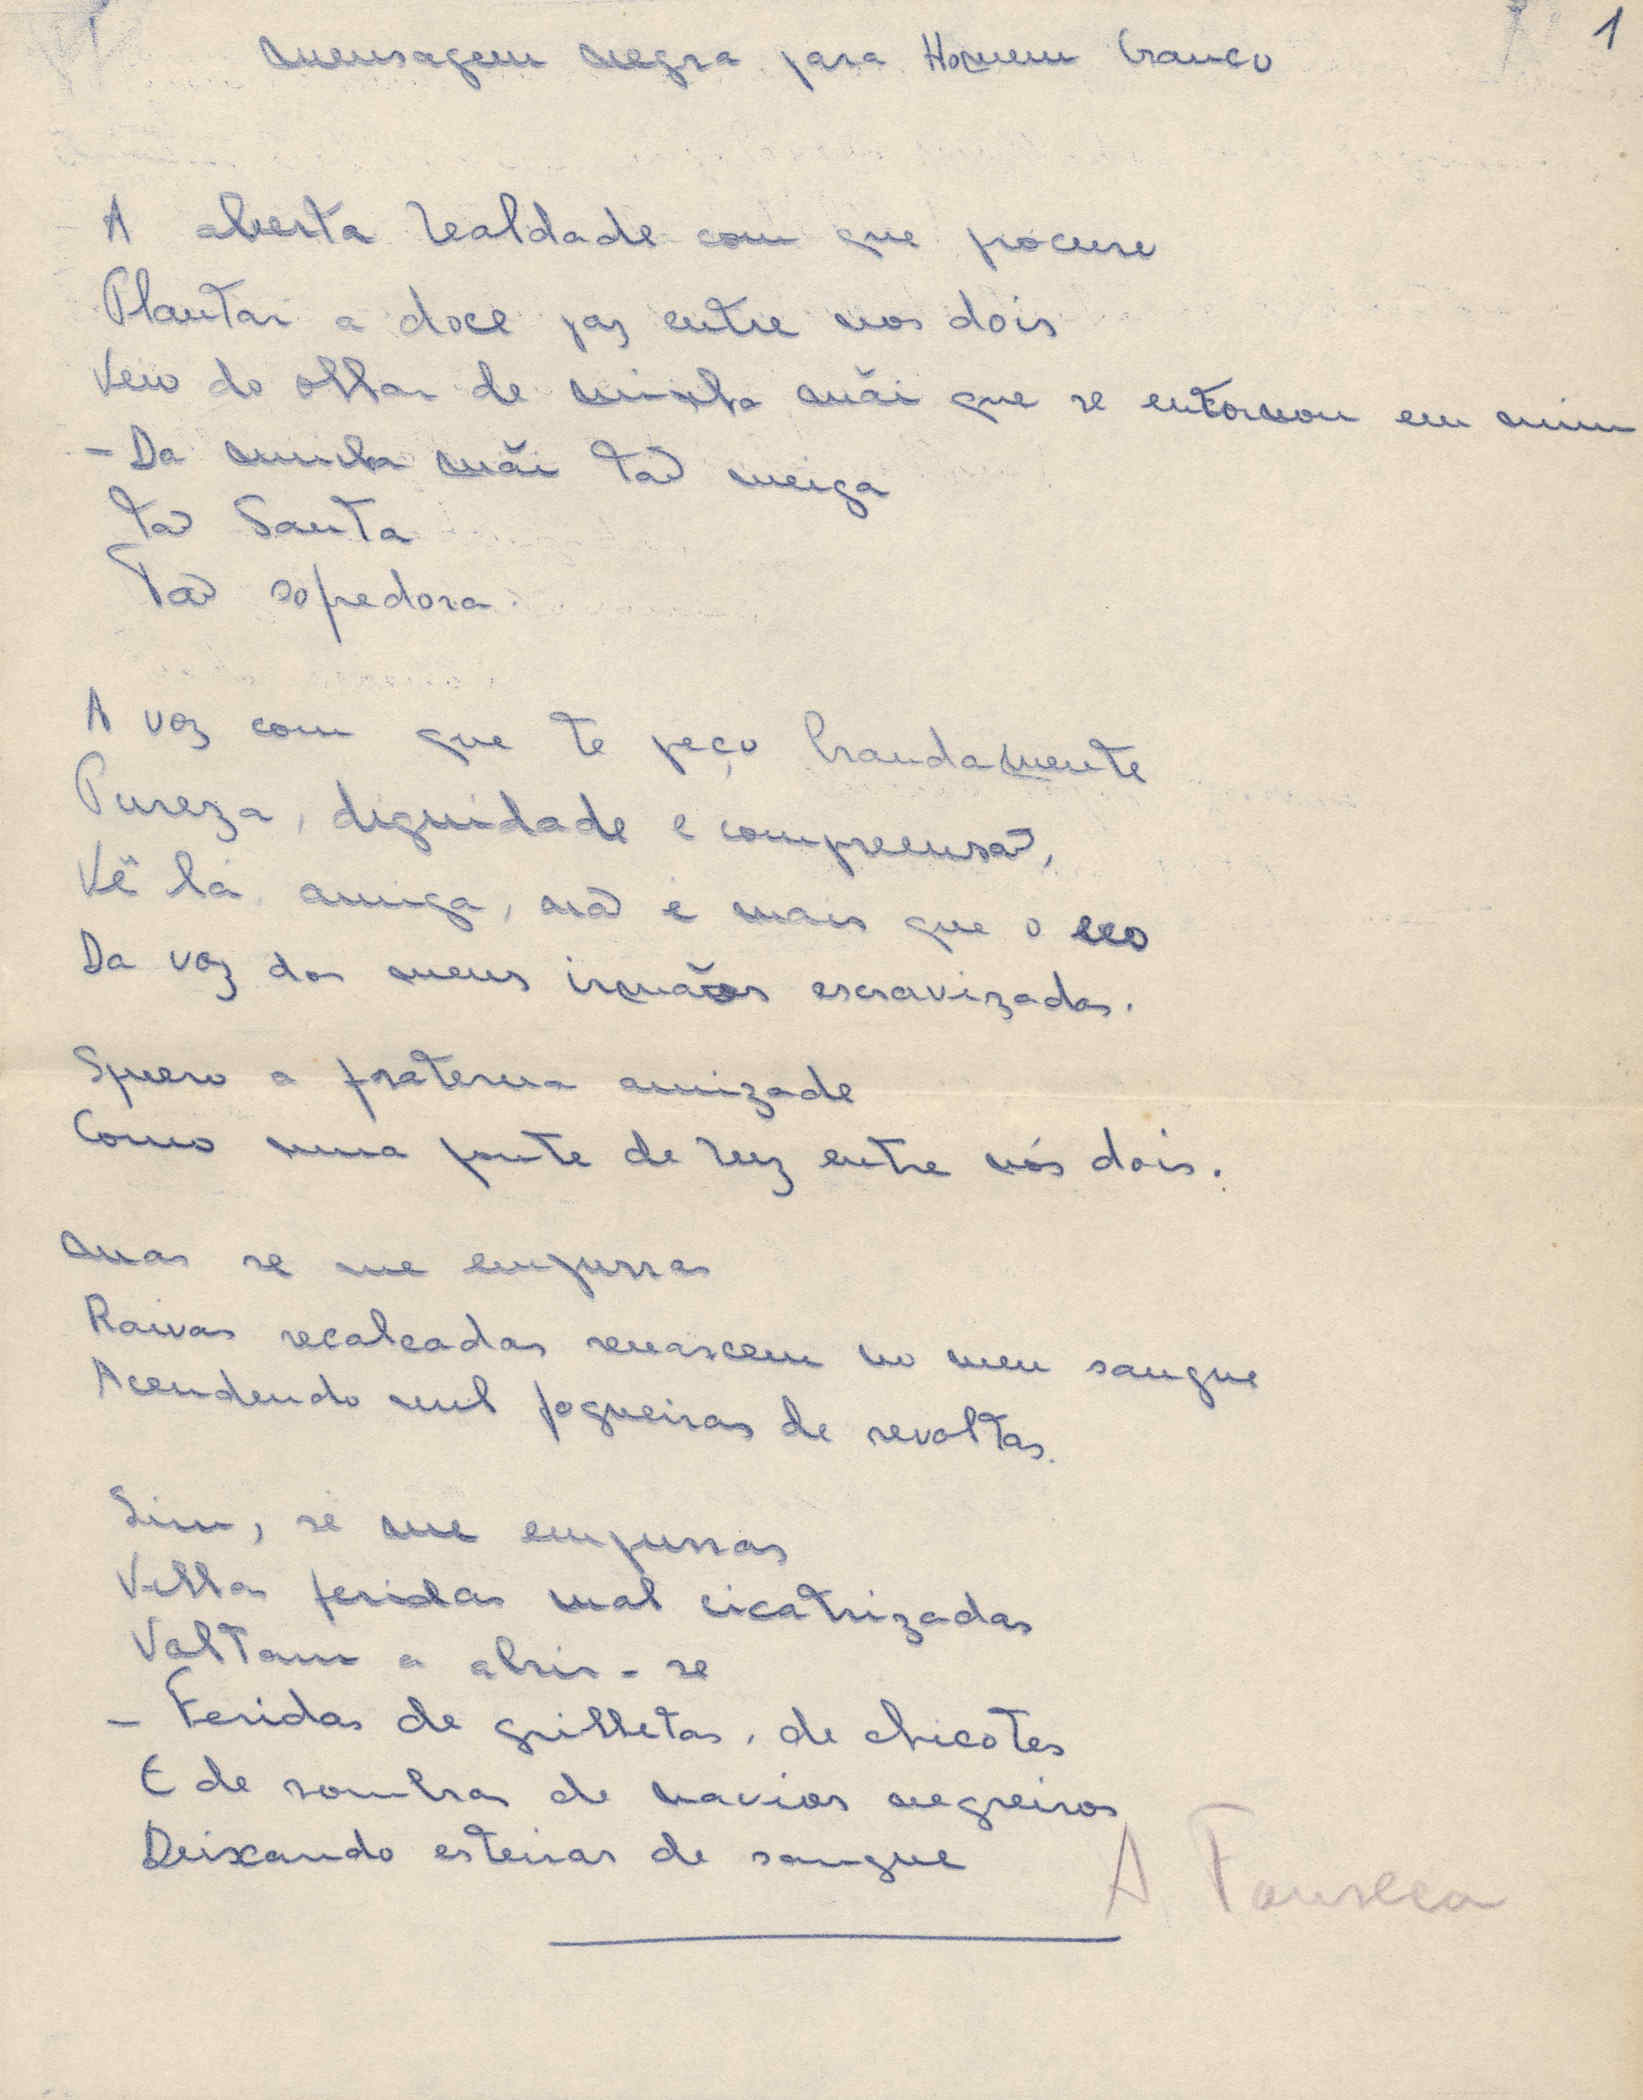 1
Mensagem negra para Homem branco
A aberta lealdade com que procuro
Plantar a doce paz entre nos dois
Veio do olhar de minha mãi que se entornou em mim
- Da minha mãi tão meiga
tão Santa
Tão sofredora.
A voz com que te peço brandamente
Pureza, dignidade e compreensão,
Vê lá, amiga, não é mais que o eco
Da voz dos meus irmãos escravizados.
Quero a fraterna amizade
Como uma ponte de luz entre nós dois.
Mas se me empurras
Raivas recalcadas renascem no meu sangue
Acendendo mil fogueiras de revoltas.
Sim, se me empurras
Velhas feridas mal cicatrizadas
Voltam a abrir-se
- Feridas de grilhetas, de chicotes
E de sombras de navios negreiros
Deixando esteiras de sangue
A Fonseca